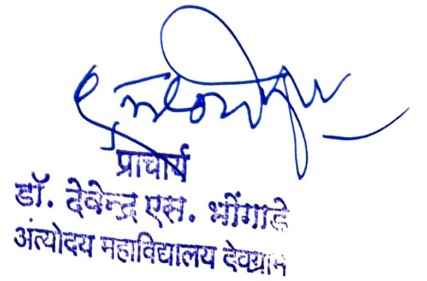 प्राचार्य
डॉ. देवेन्द्र एस. भोंगाडे
अंत्योदय महाविद्यालय देवग्राम